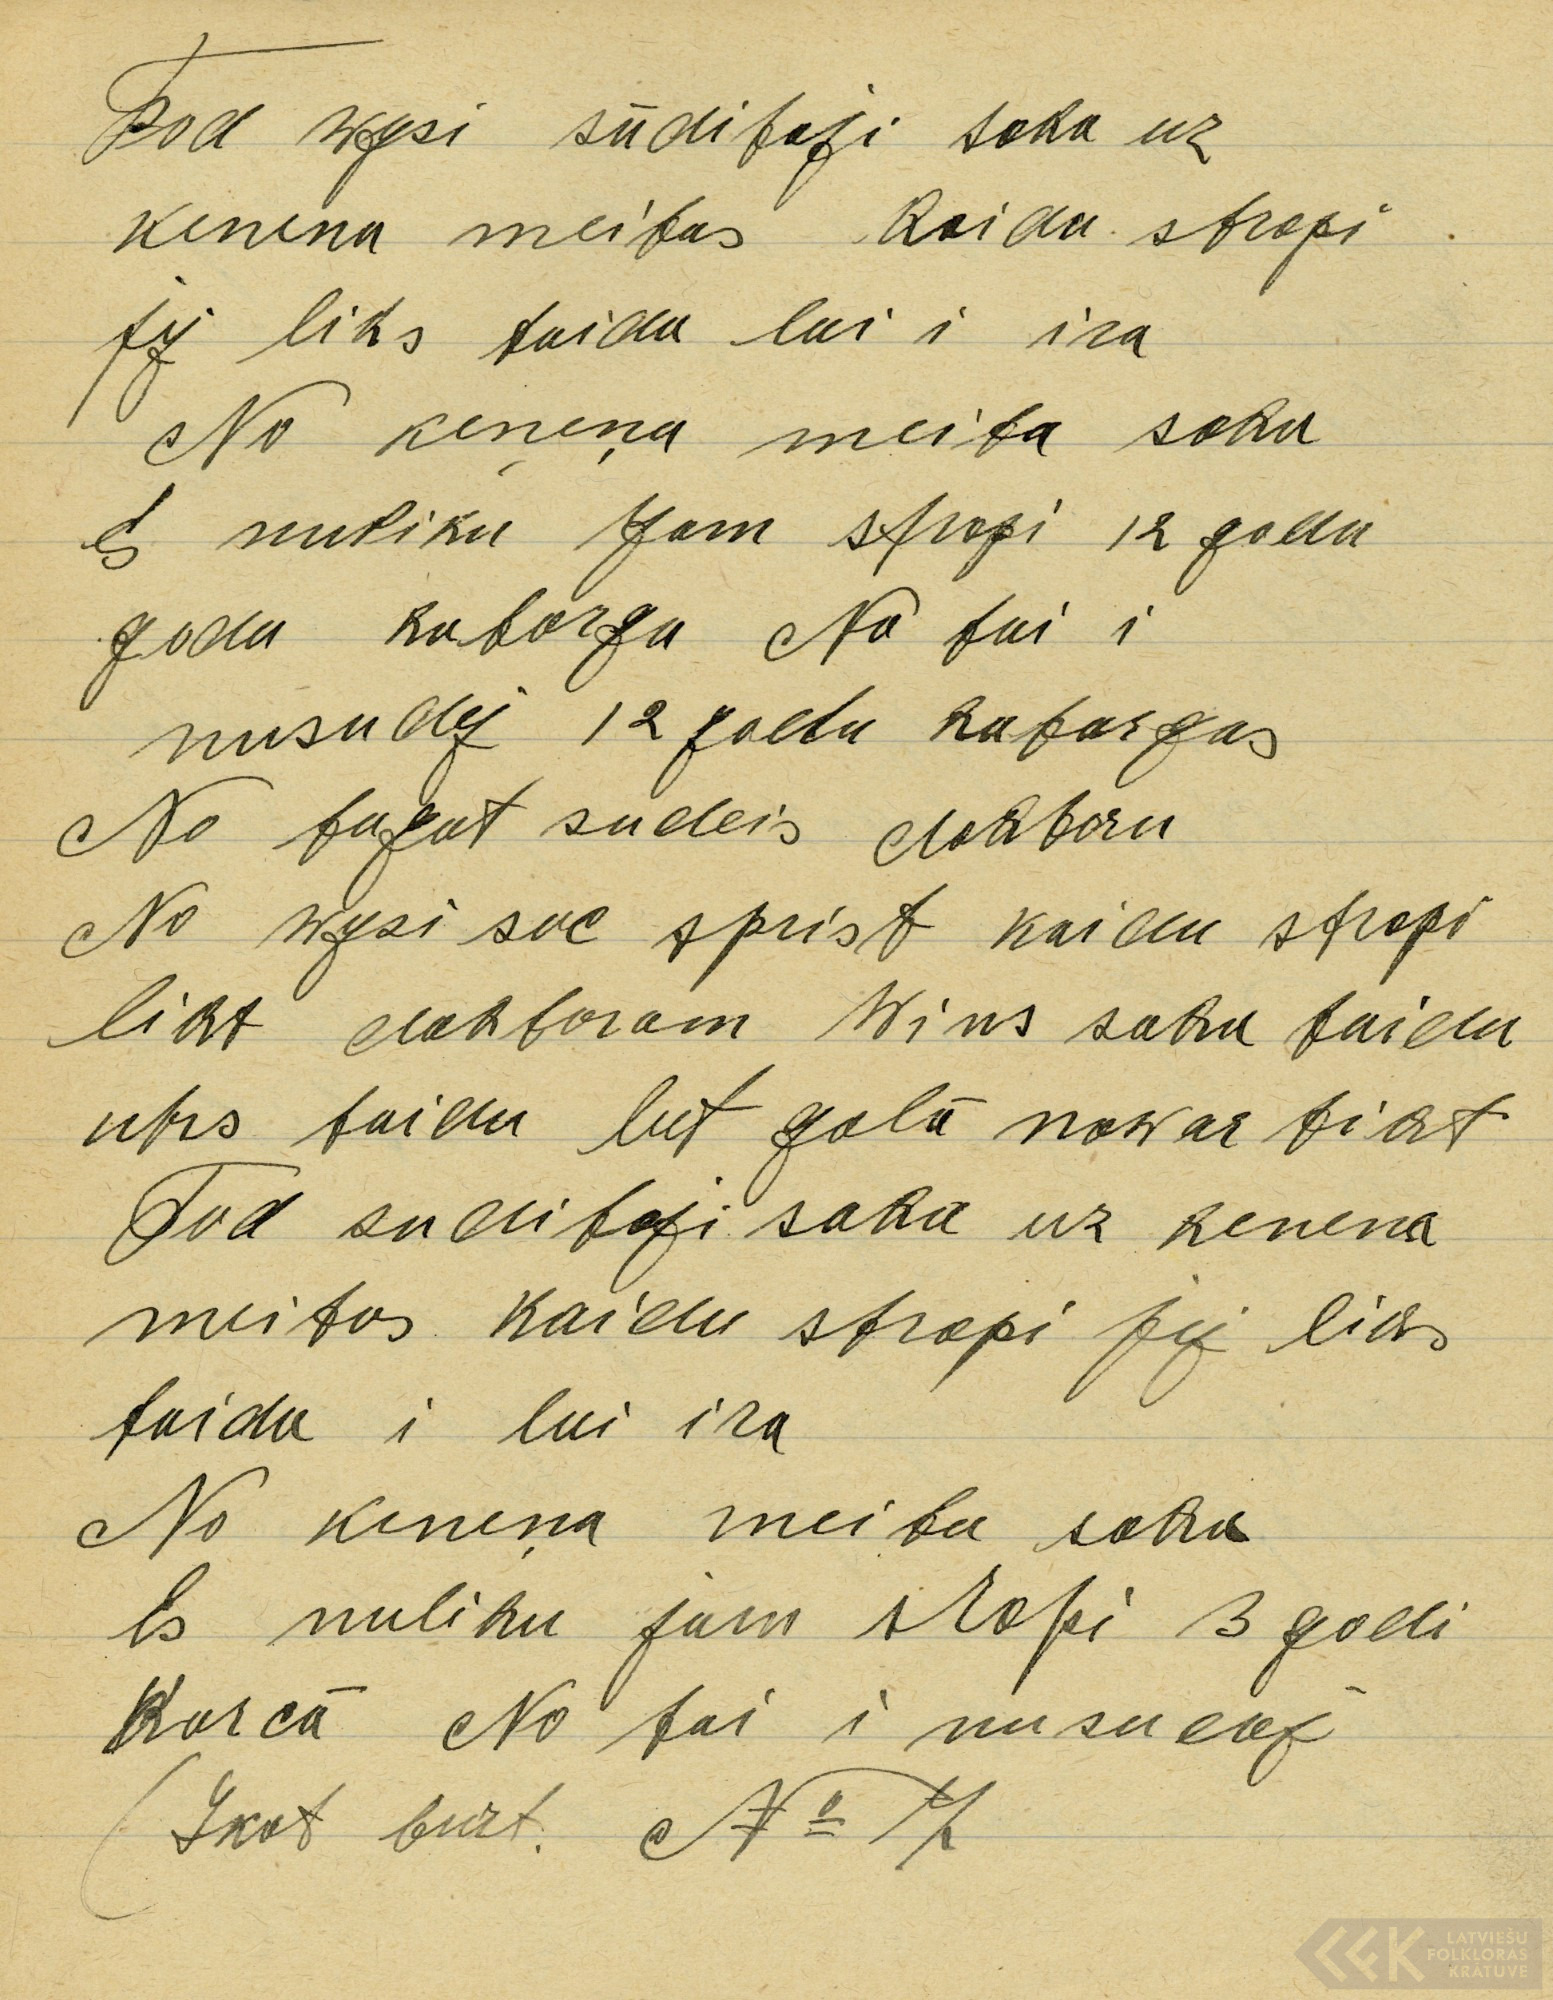 Tod wysi sūditoji soka uz
kenena meitas Kaidu stropi
jej liks taidu lai i ira
No keņeņa meita soka
Es nuliku Jam stropi 12 godu
godu katorga No tai i
nusudej 12 godu katorgas
No tagat sudeis doktoru
No wysi soc sprist kaidu stropi
likt doktoram Wins soka taidu
utrs taidu bet golā nawar tikt
Tod suditoji soka uz kenena
meitos Kaidu stropi jej liks
taidu i lai ira
No keneņa meita soka
Es nuliku jam stropi 3 godi
Korcā No tai i nusudej
(Skot burt. №
LATVIEŠU
FOLKLORAS
KRĀTUVE